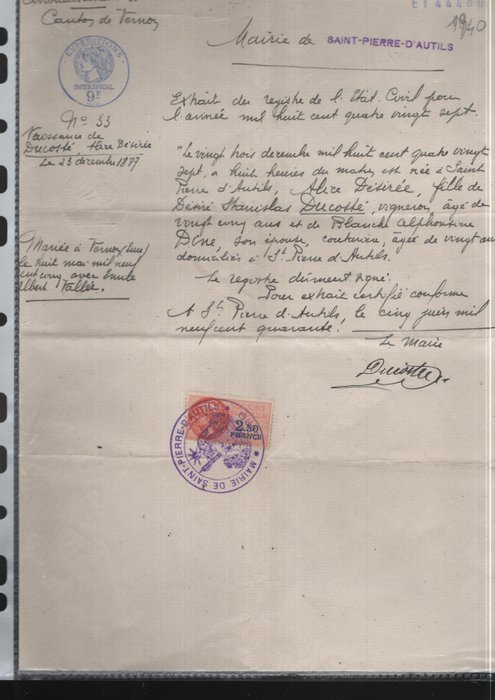 Canton de Vernon
19/40
Mairie de SAINT-PIERRE-D'AUTILS
EXPÉDITIONS
PAPIER SPÉCIAL
9F
Extrait du registre de l'Etat Civil pour
l'année mil huit cent quatre vingt sept.
N° 33
Naissance de
Ducosté, Alice Désirée
Le 23 décembre 1887
"Le vingt trois décembre mil huit cent quatre vingt
sept, à huit heures du matin est née à Saint
Pierre d'Autils, Alice Désirée, fille de
Désiré Stanislas Ducosté, vigneron, âgé de
vingt cinq ans et de Blanche Alphonsine
Dine, son épouse, couturière, âgée de vingt ans
domiciliés à St Pierre d'Autils.
Mariée à Vernon (Eure)
le huit mai mil neuf
cent cinq, avec Emile
Albert Vallée.
Le registre dûment signé.
Pour extrait certifié conforme
A St Pierre d'Autils, le cinq juin mil
neuf cent quarante.
Le Maire
Ducosté
2.50
FRANCS
MAIRIE DE SAINT-PIERRE-D'AUTILS